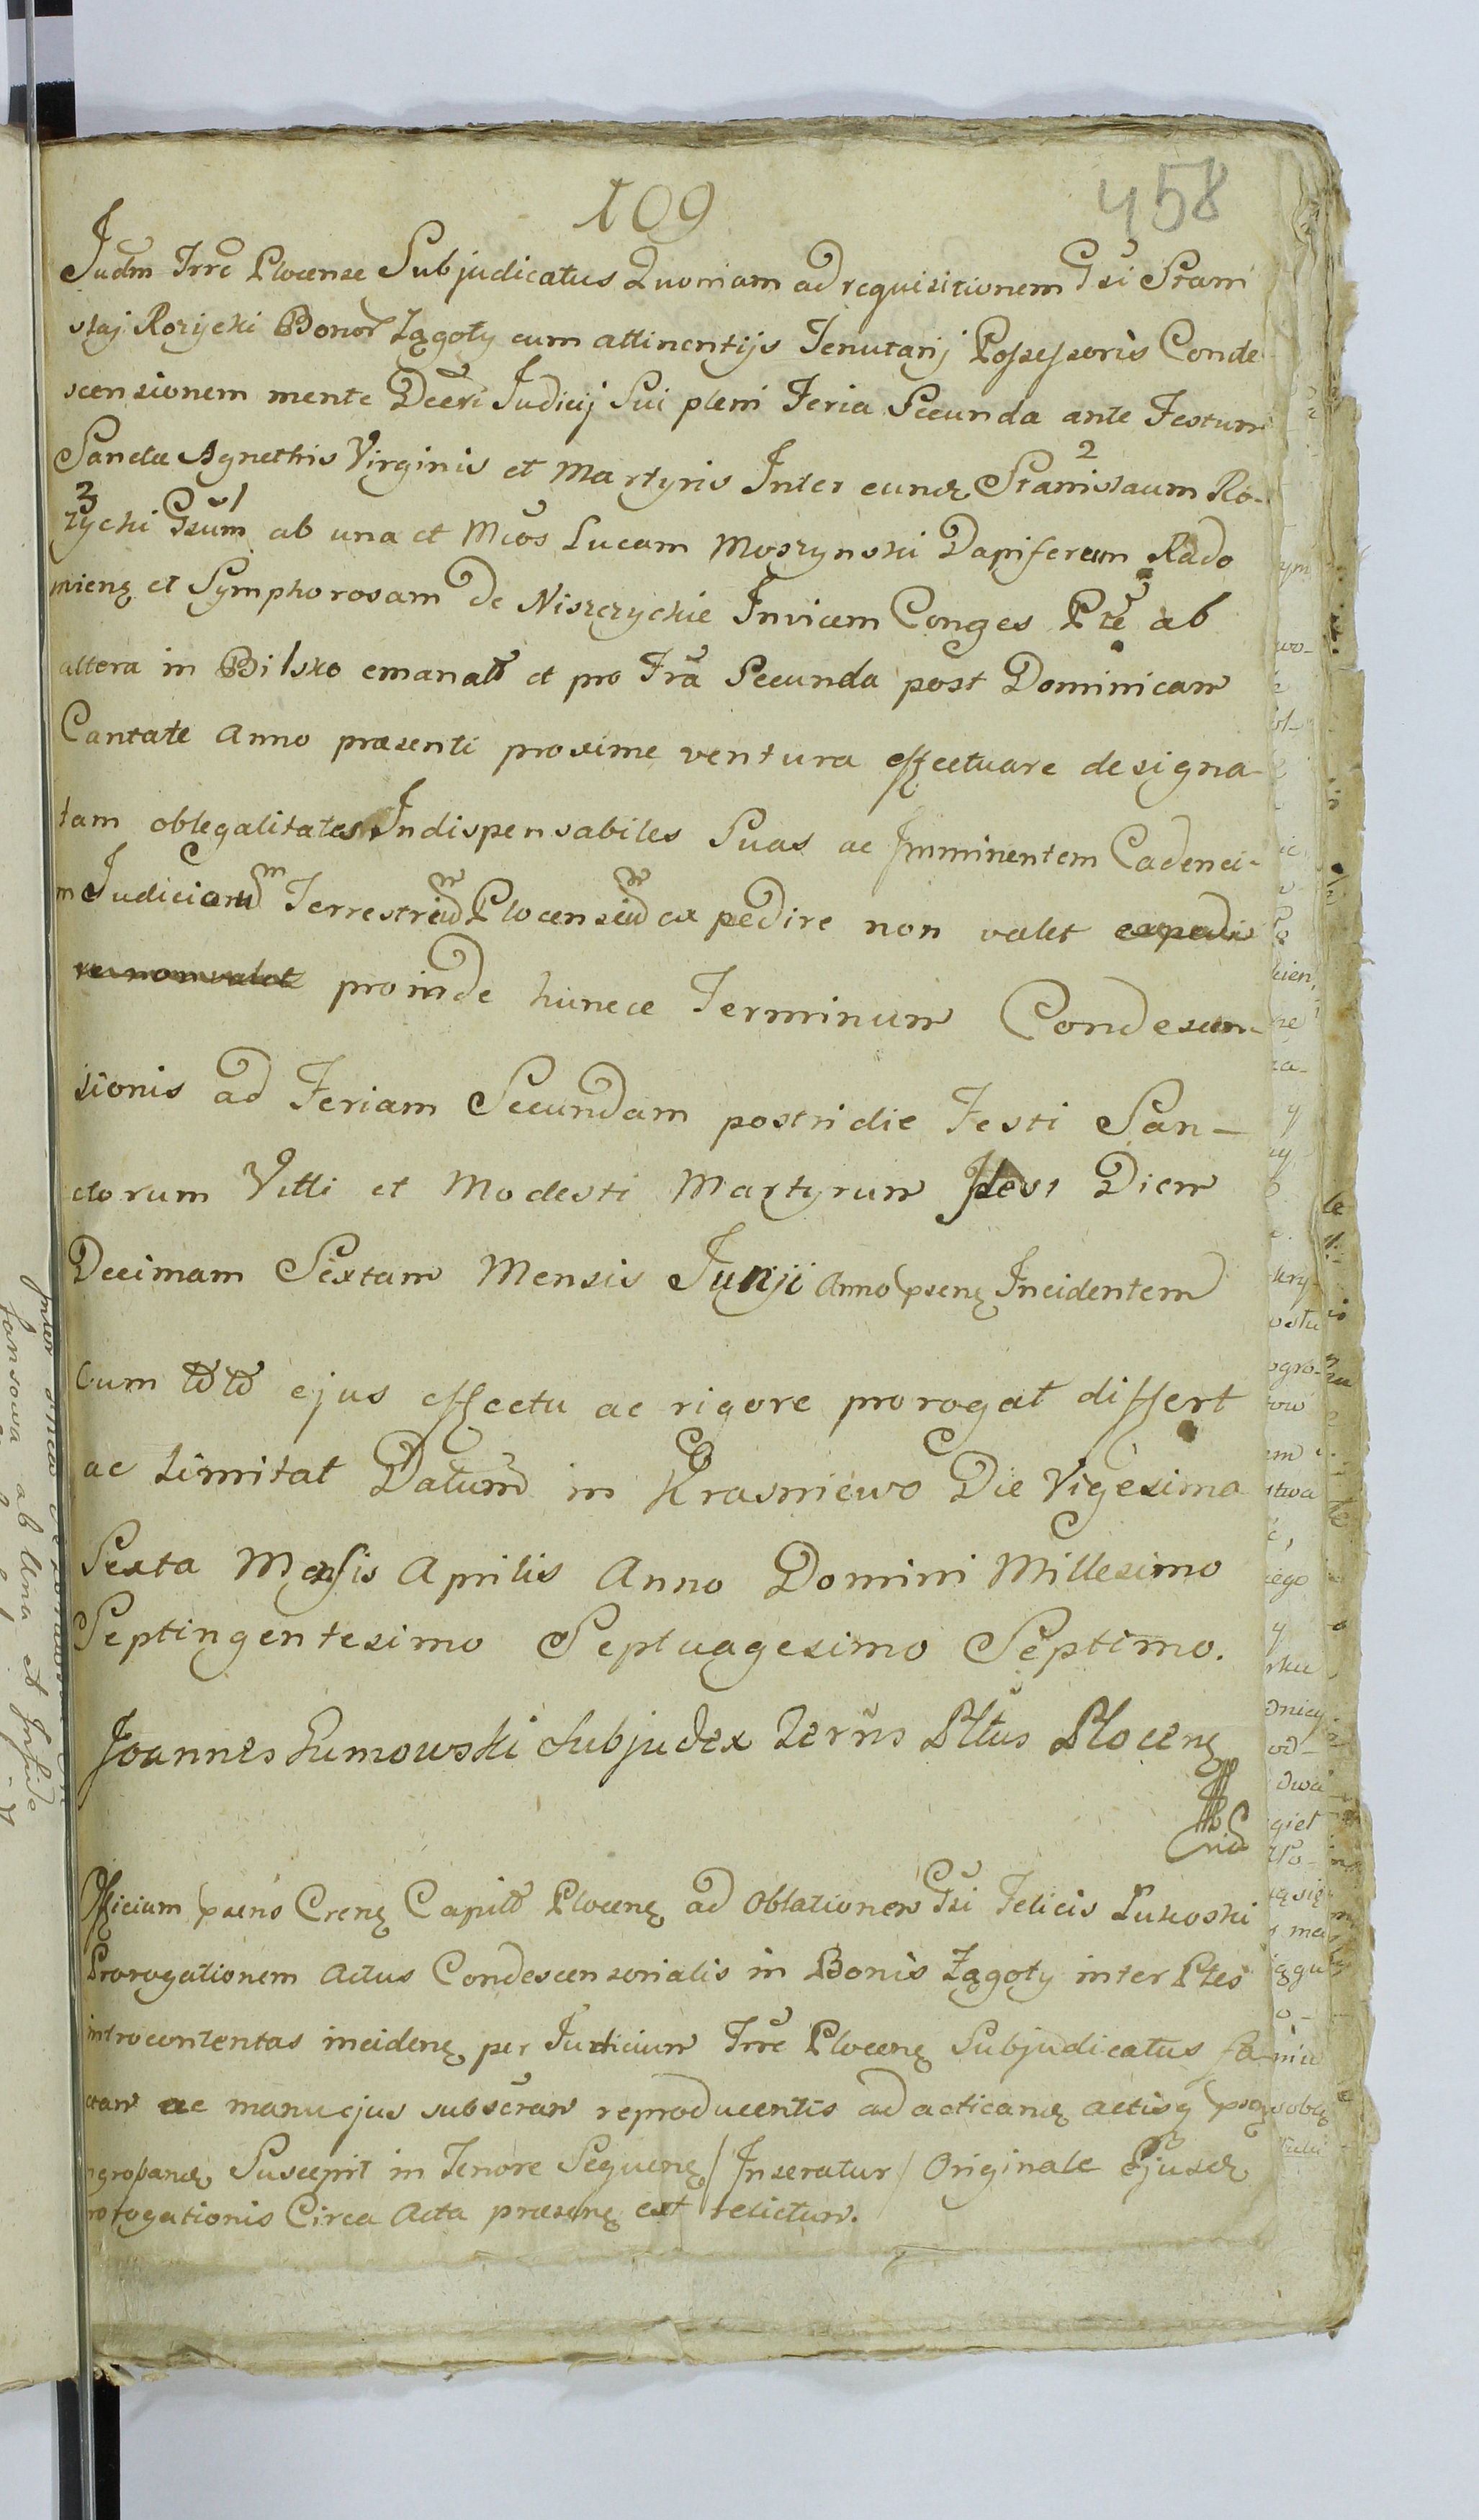 109
458
Judm Trre Plocense Subjudicatus Quoniam ad requisitionem Gsi Stani
slaj Rozycki Bonor Zągoty cum attinentijs Tenutarij Possessoris Conde
scensionem mente Decri Judicij Sui pleni Feria Secunda ante Festum
Sanctæ Agnethis Virginis et Martyris Inter eundę Stanislaum Ro-
2
3 1
zycki Gsum ab una et Mcos Lucam Moszynski Dapiferum Rado
mienę et Symphorosam de Niszczyckie Invicem Conges Pte ab
altera in Bilsko emanatt et pro Fra Secunda post Dominicam
Cantate anno præsenti proxime ventura effectuare designa-
tam oblegalitates Indispensabiles Suas ac Imminentem Cadenci-
m Judiciorum Terrestrium Plocensium expedire non valet expedi
re non valet proinde huncce Terminum Condescen-
sionis ad Feriam Secundam postridie Festi San-
ctorum Vitti et Modesti Martyrum Diem
Decimam Sextam Mensis Junji Anno psenę Incidentem
Cum toto ejus effectu ac rigore prorogat differt
ac Limitat Datum in Krasniewo Die Vigesima
Sexta Mensis Aprilis Anno Domini Millesimo
Septingentesimo Septuagesimo Septimo.
Joannes Łumowski Subjudex Terris Pltus Plocenę
Officium psens Crenę Capitt Plocenę ad Oblationem Gsi Felicis Łukoski
Prorogationem Actus Condescensorialis in Bonis Zągoty inter Ptes
introcontentas incidenę per Judicium Trre Plocenę Subjudicatus fa
ctam ac manu ejus subscram reproducentis ad acticandę actisq psenę
ngrossandę Suscepit in Tenore Sequenę / Inseratur / Originale Ejusdę
rorogationis Circa Acta præsenę est relictum.